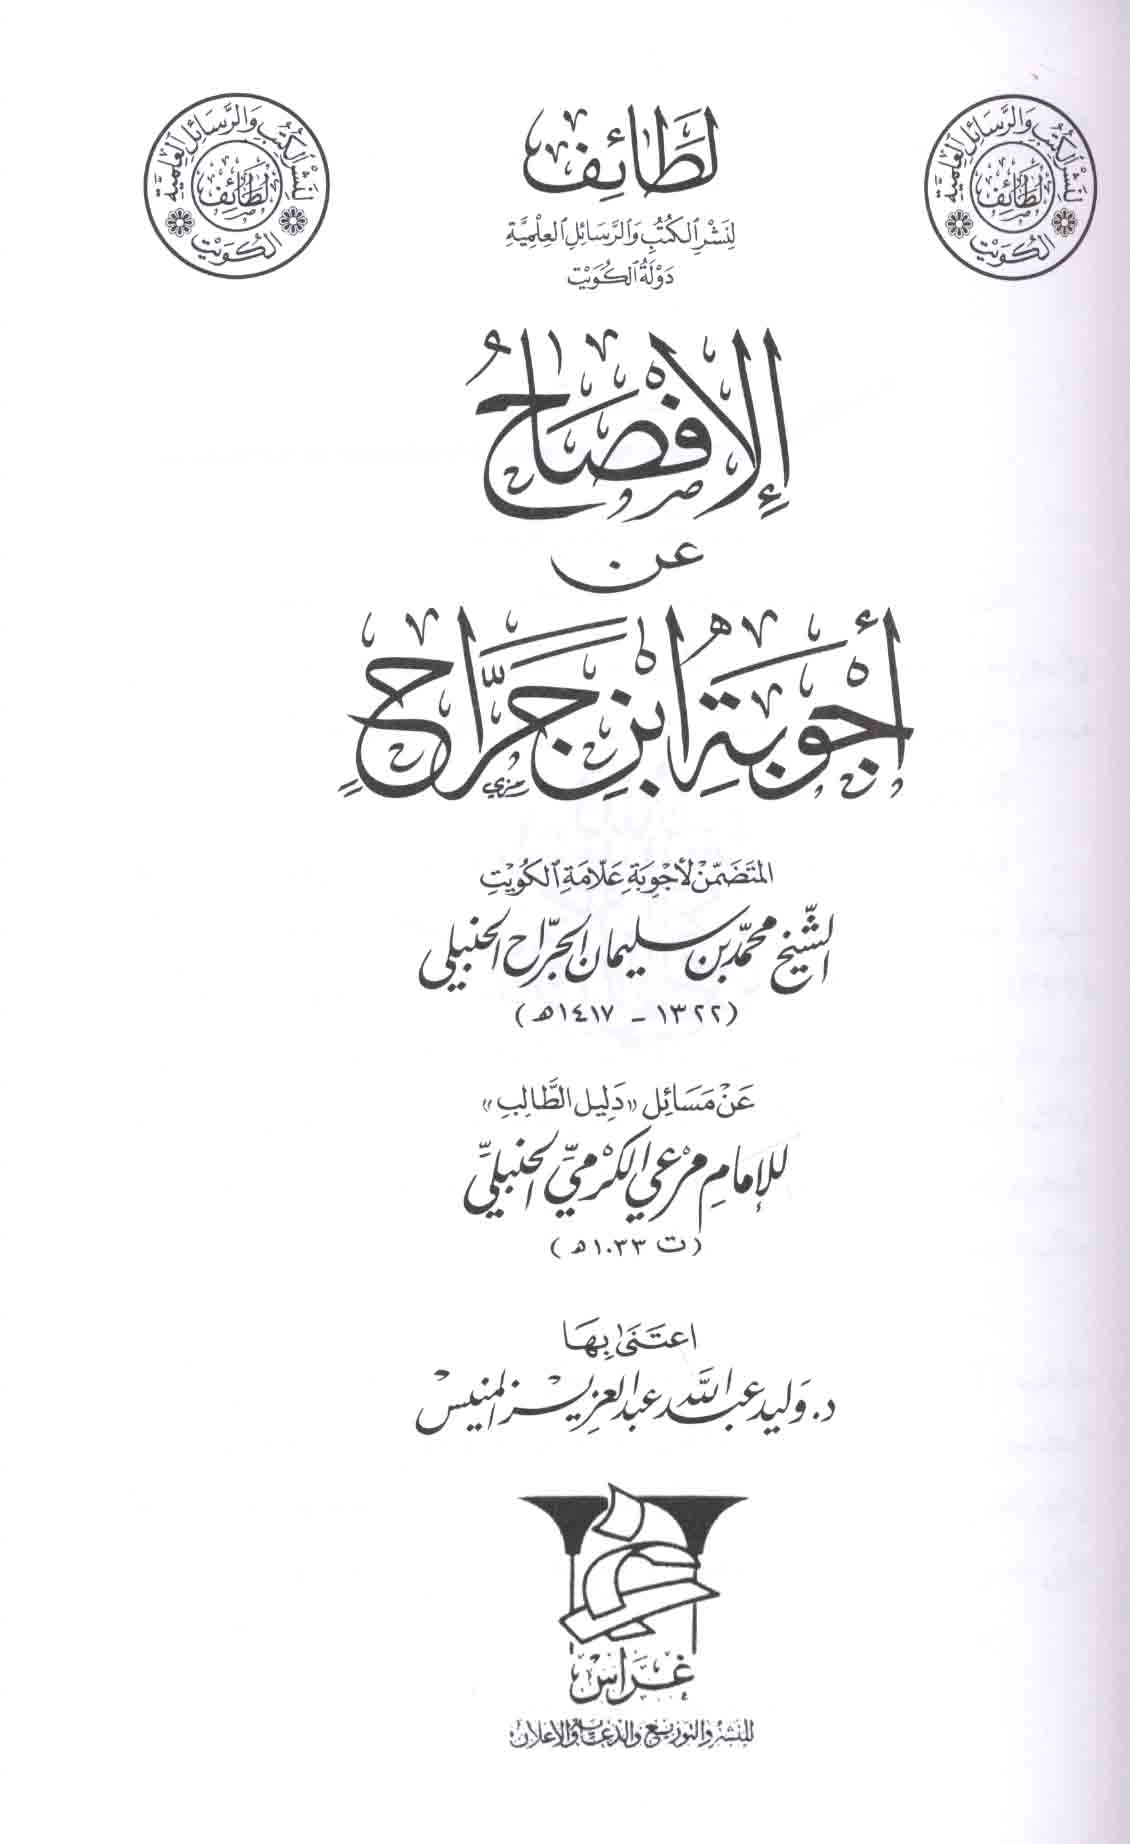 لَطَائِف
لِنَشْرِ الكُتُبِ وَالرَّسَائِلِ العِلْمِيَّةِ
دَوْلَةُ الكُوَيْتِ
لِنَشْرِ الكُتُبِ وَالرَّسَائِلِ العِلْمِيَّةِ
لَطَائِف
الكُوَيْت
لِنَشْرِ الكُتُبِ وَالرَّسَائِلِ العِلْمِيَّةِ
لَطَائِف
الكُوَيْت
الإِفْصَاحُ
عن
أَجْوِبَةِ ابْنِ جَرَّاحٍ
المتَضَمِّنْ لأَجْوِبَةِ عَلَّامَةِ الكُوَيْتِ
الشَّيْخ محمَّد بن سليمان الجرَّاح الحنبلي
(١٣٢٢ - ١٤١٧هـ)
عَنْ مَسَائِل «دَلِيل الطَّالِبِ»
للإمامِ مَرْعي الكَرْميِّ الحنبليِّ
(ت ١٠٣٣هـ)
اعتَنَىٰ بِهَا
د. وَليد عَبد الله عَبد العزيز المنيّس
غراس
للنشر والتوزيع والدعاية والإعلان